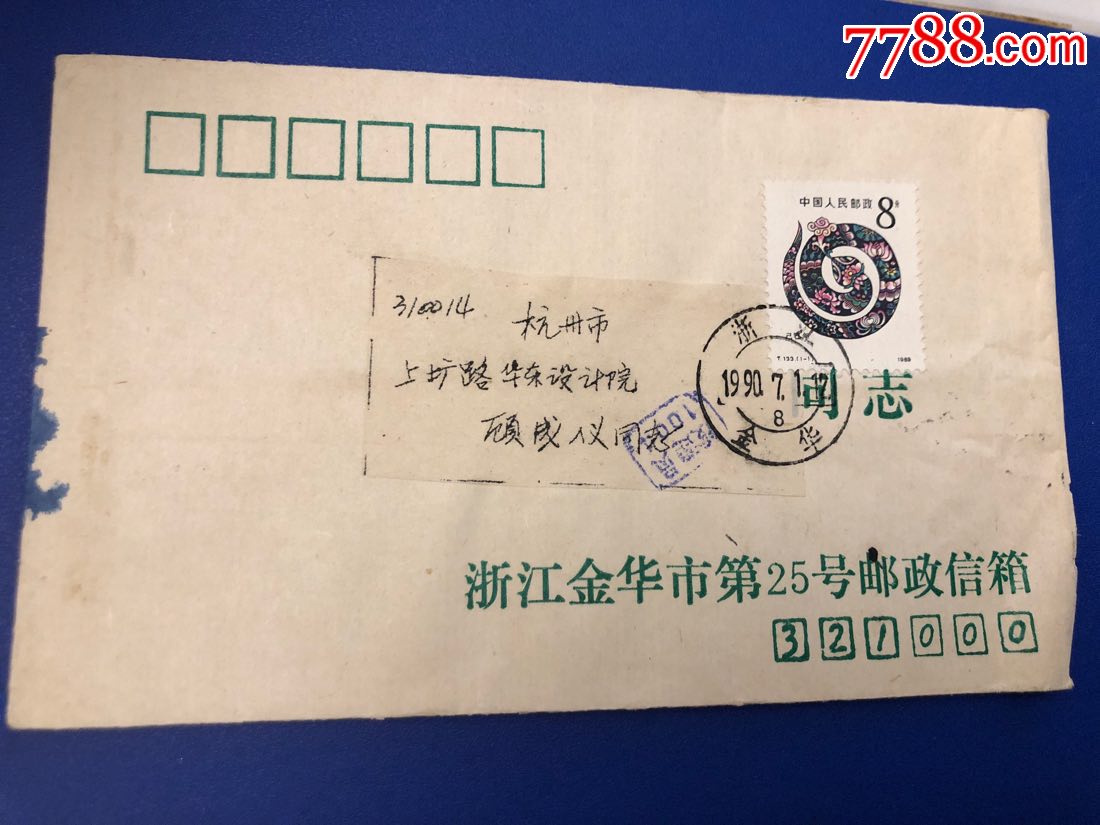 7788.com
中国人民邮政 8分
T.133.(1-1) 1989
310014
杭州市
上圹路华东设计院
顾成仪同志
浙江
1990.7.1.12
8
金华
同志
浙江金华市第25号邮政信箱
321000